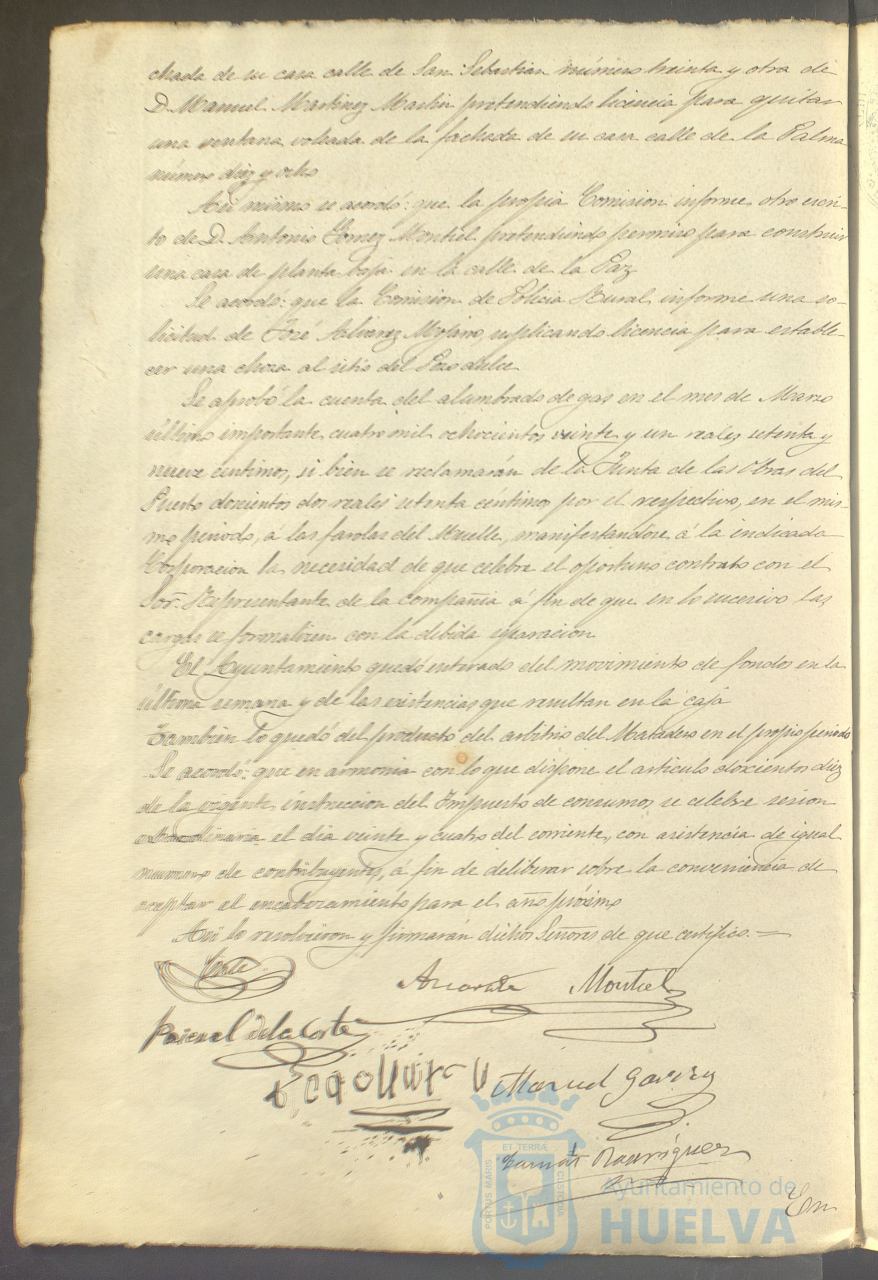 chada de su casa calle de San Sebastian número treinta y otra de
D. Manuel Martinez Martin pretendiendo licencia para quitar
una ventana volada de la fachada de su casa calle de la Palma
número diez y ocho
Asi mismo se acordó: que la propia Comision informe otro escri-
to de D. Antonio Gomez Montiel pretendiendo permiso para construir
una casa de planta baja en la calle de la Paz
Se acordó: que la Comision de Policia Rural informe una so-
licitud de José Alvarez Mojarro, suplicando licencia para estable-
cer una choza al sitio del Pozo dulce
Se aprobó la cuenta del alumbrado de gas en el mes de Marzo
último importante cuatro mil ochocientos veinte y un reales setenta y
nueve centimos, si bien se reclamarán de la Junta de las Obras del
Puerto doscientos dos reales setenta centimos por el respectivo, en el mis-
mo periodo, á las farolas del Muelle, manifestandose á la indicada
Corporacion la necesidad de que celebre el oportuno contrato con el
Sor. Representante de la compañia á fin de que en lo sucesivo las
cargas se formalicen con la debida separacion
El Ayuntamiento quedó enterado del movimiento de fondos en la
última semana y de las existencias que resultan en la caja
Tambien lo quedó del producto del arbitrio del Matadero en el propio periodo
Se acordó: que en armonia con lo que dispone el articulo doscientos diez
de la vigente instruccion del Impuesto de consumos se celebre sesion
extraordinaria el dia veinte y cuatro del corriente, con asistencia de igual
número de contribuyentes, á fin de deliberar sobre la conveniencia de
aceptar el encabezamiento para el año próximo
Asi lo resolvieron y firmarán dichos Señores de que certifico.=
Montiel
Pascual de la Corte
Manuel Garcia
Rodriguez
En
ET TERRÆ
PORTUS MARIS
CUSTODIA
Ayuntamiento de
HUELVA